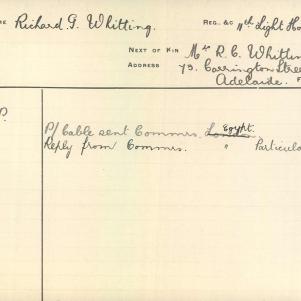 RE Richard G. Whitting. REG. &C 11th Light Ho
NEXT OF KIN Mr R. C. Whittin
ADDRESS 73. Carrington Stree
Adelaide.
P.
P/ Cable sent Commrs. London Egypt.
Reply from Commrs. " Particula